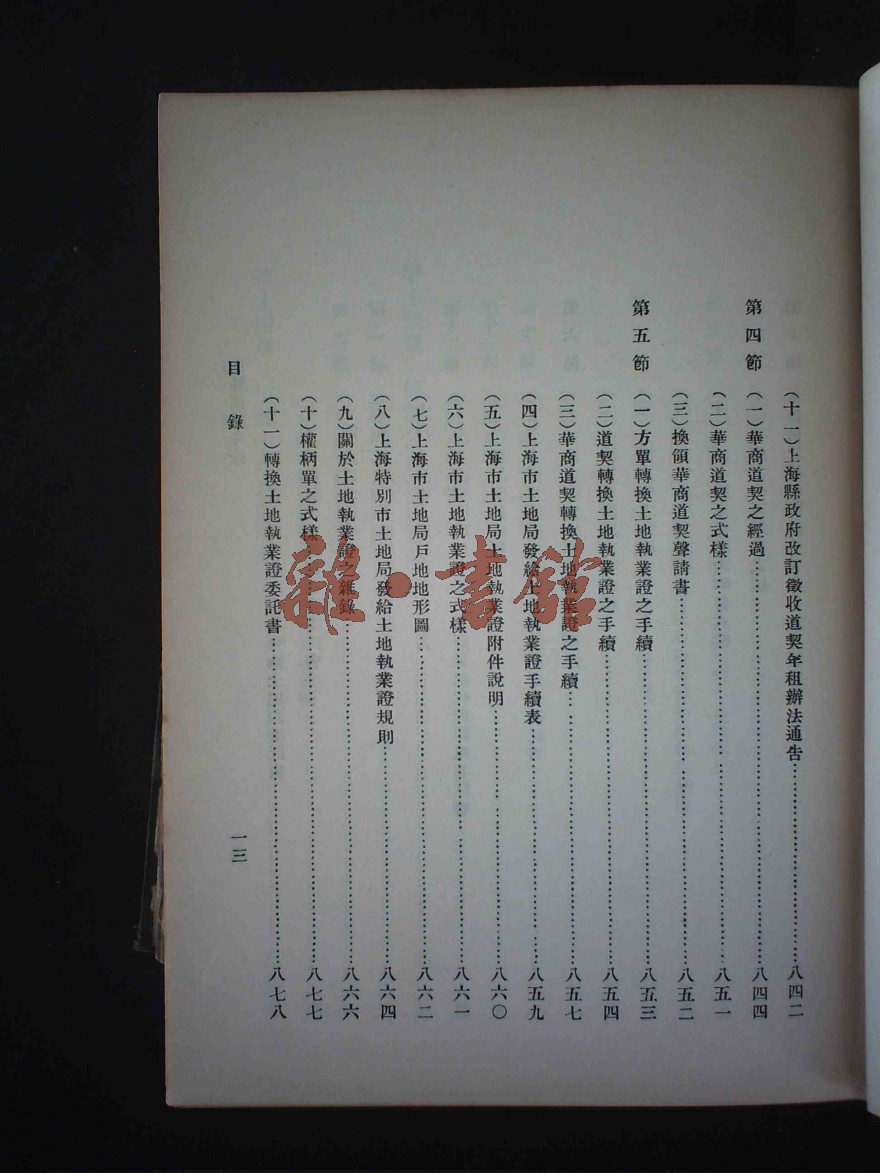 (十一)上海縣政府改訂徵收道契年租辦法通告……八四二
第四節
(一)華商道契之經過……八四四
(二)華商道契之式樣……八五一
(三)換領華商道契聲請書……八五二
第五節
(一)方單轉換土地執業證之手續……八五三
(二)道契轉換土地執業證之手續……八五四
(三)華商道契轉換土地執業證之手續……八五七
(四)上海市土地局發給土地執業證手續表……八五九
(五)上海市土地局土地執業證附件說明……八六〇
(六)上海市土地執業證之式樣……八六一
(七)上海市土地局戶地地形圖……八六二
(八)上海特別市土地局發給土地執業證規則……八六四
(九)關於土地執業證之雜錄……八六六
(十)權柄單之式樣……八七七
(十一)轉換土地執業證委託書……八七八
目錄
一三
雜·書館